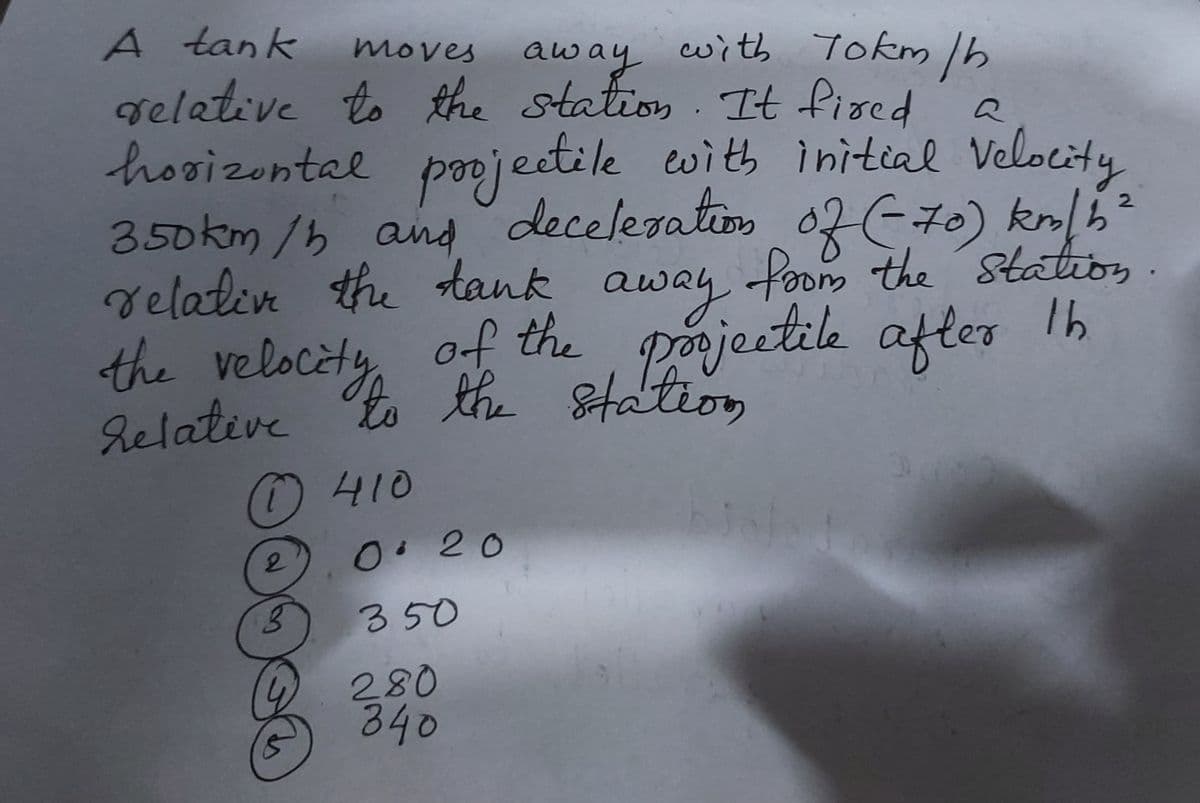 A tank moves away with 70km/h
relative to the station. It fired a
horizontal projectile with initial Velocity
350km/h and deceleration of (-70) km/h²
relative the tank away from the station.
the velocity of the projectile after 1h
Relative to the station
① 410
② 0.20
③ 350
④ 280
⑤ 340